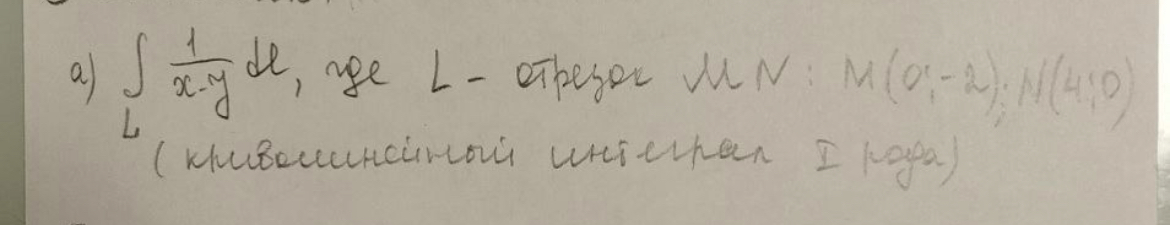 а) ∫ 1/(x-y) dl, где L - отрезок MN: M(0;-2); N(4;0)
L
(криволинейный интеграл I рода)